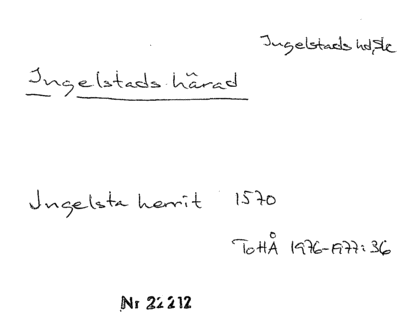 Ingelstads hd, Sk
Ingelstads härad
Ingelsta herrit 1570
ToHÅ 1976-1977:36
Nr 22212